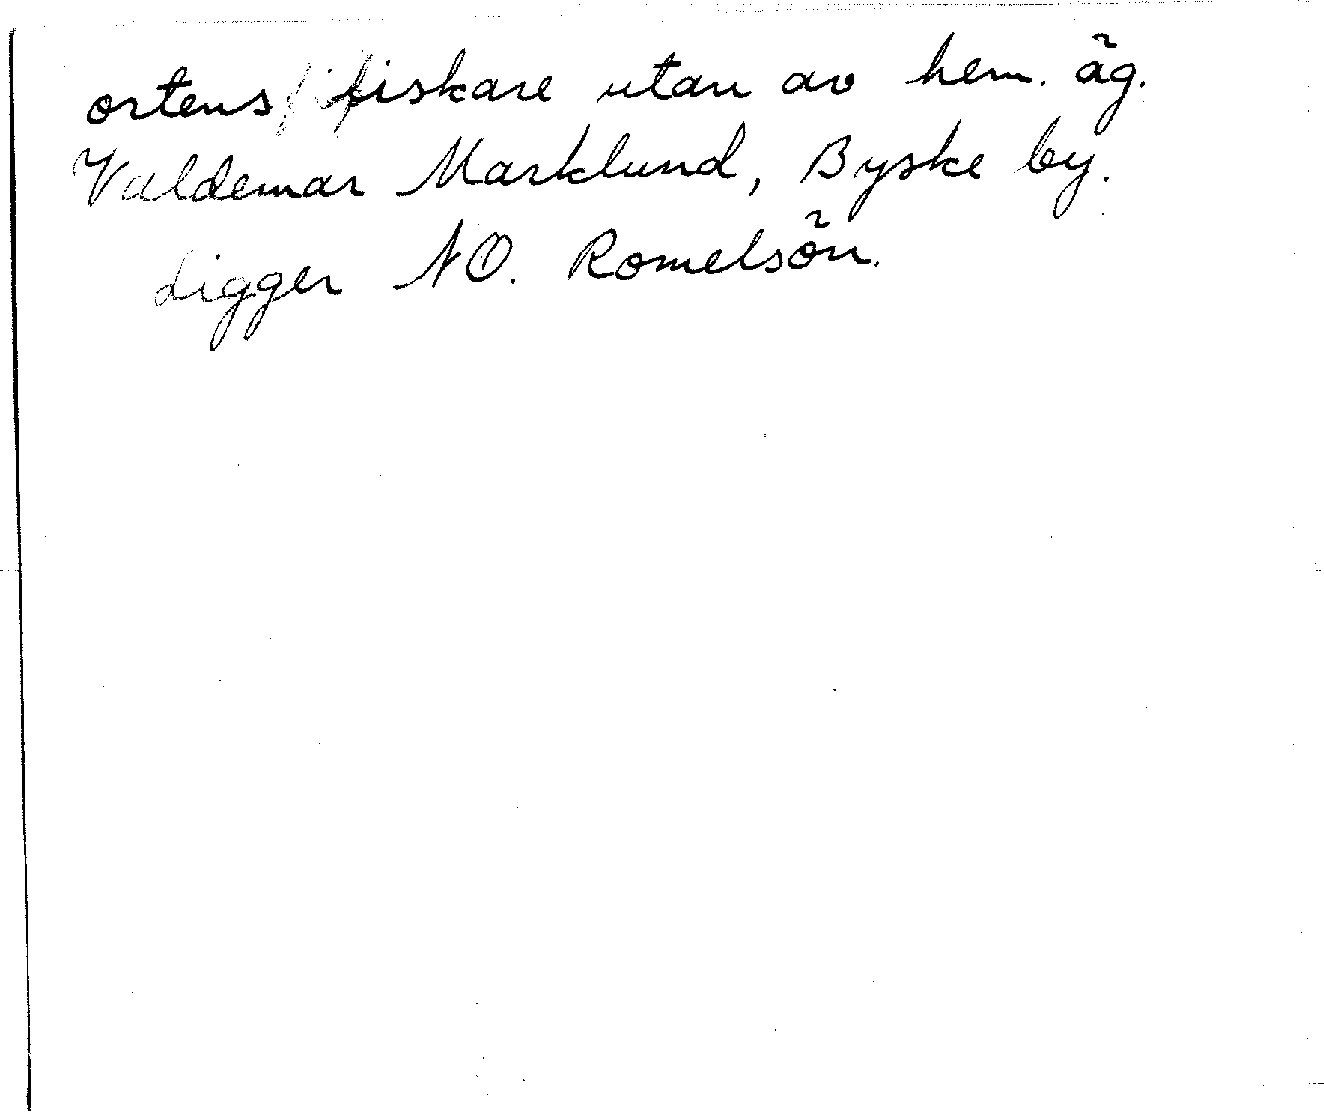 ortens fiskare utan av hem. äg.
Valdemar Marklund, Byske by.
Ligger NO. Romelsön.